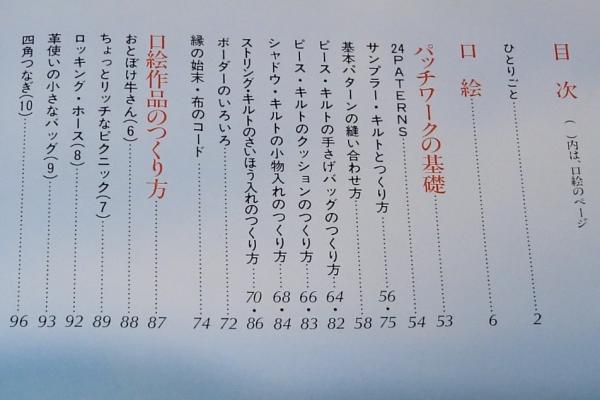 目次
( )内は、口絵のページ
ひとりごと……2
口絵……6
パッチワークの基礎……53
24 PATERNS……54
サンプラー・キルトとつくり方……56・75
基本パターンの縫い合わせ方……58
ピース・キルトの手さげバッグのつくり方……64・82
ピース・キルトのクッションのつくり方……66・83
シャドウ・キルトの小物入れのつくり方……68・84
ストリング・キルトのさいほう入れのつくり方……70・86
ボーダーのいろいろ……72
縁の始末・布のコード……74
口絵作品のつくり方……87
おとぼけ牛さん(6)……88
ちょっとリッチなピクニック(7)……89
ロッキング・ホース(8)……92
革使いの小さなバッグ(9)……93
四角つなぎ(10)……96